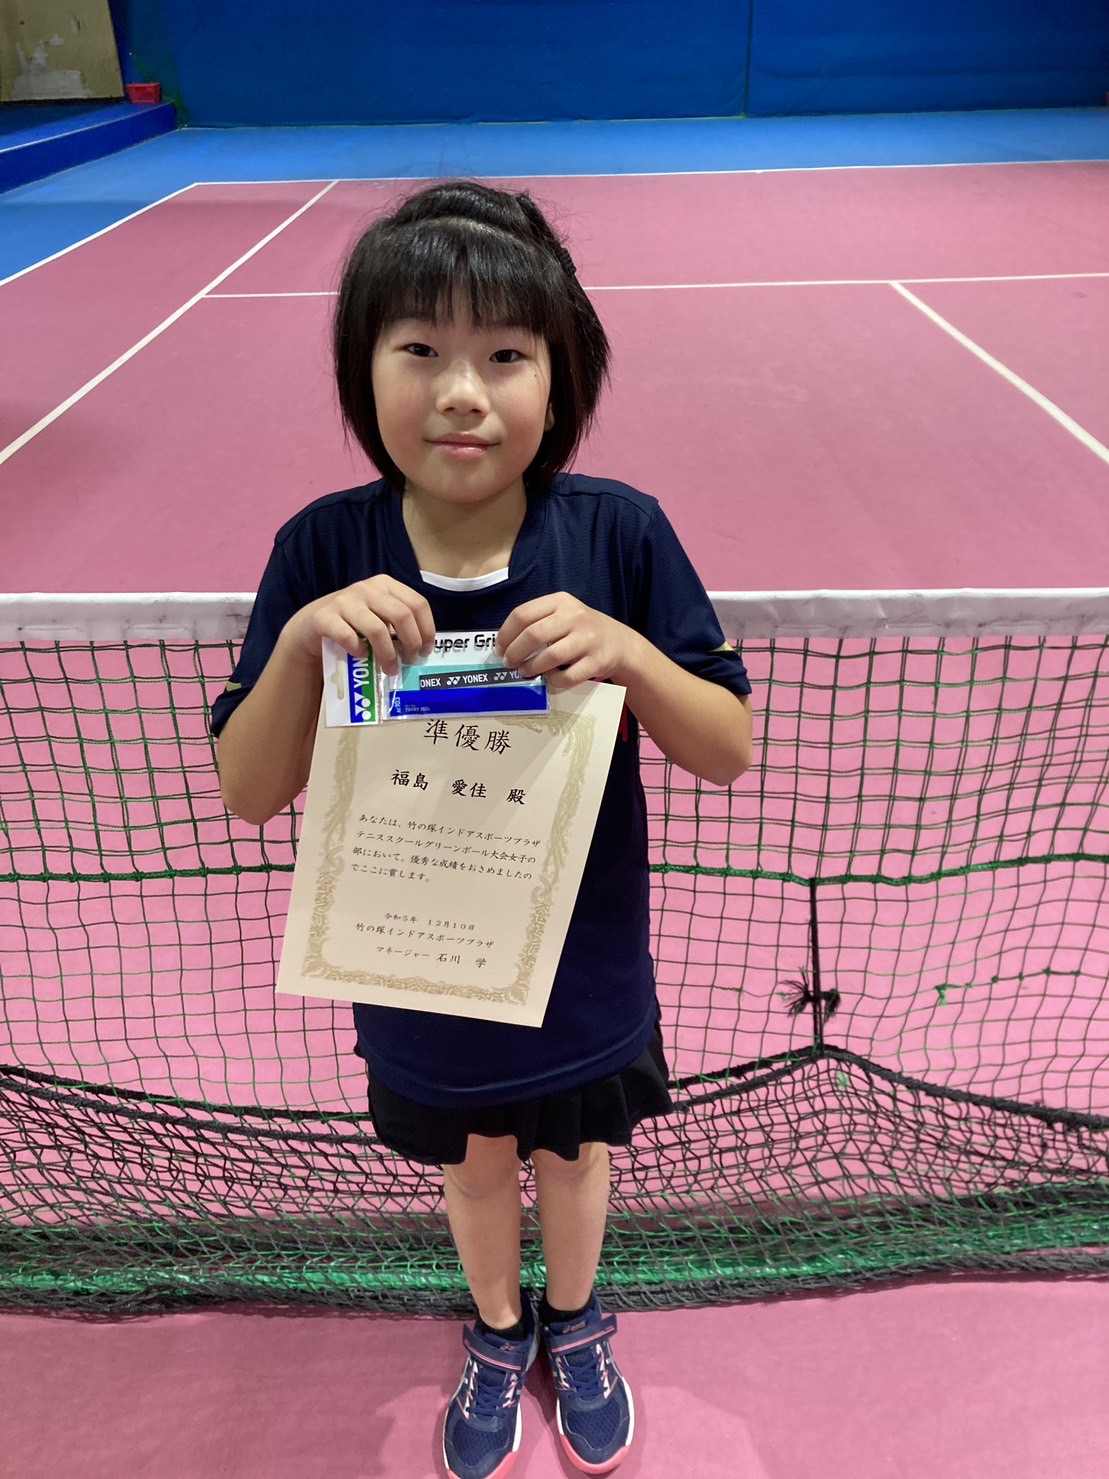 uper Gri
YONEX
ONEX YONEX YO
TACKY FEEL
準優勝
福島 愛佳 殿
あなたは、竹の塚インドアスポーツプラザ
テニススクールグリーンボール大会女子の
部において、優秀な成績をおさめましたの
でここに賞します。
令和5年 12月10日
竹の塚インドアスポーツプラザ
マネージャー 石川 学